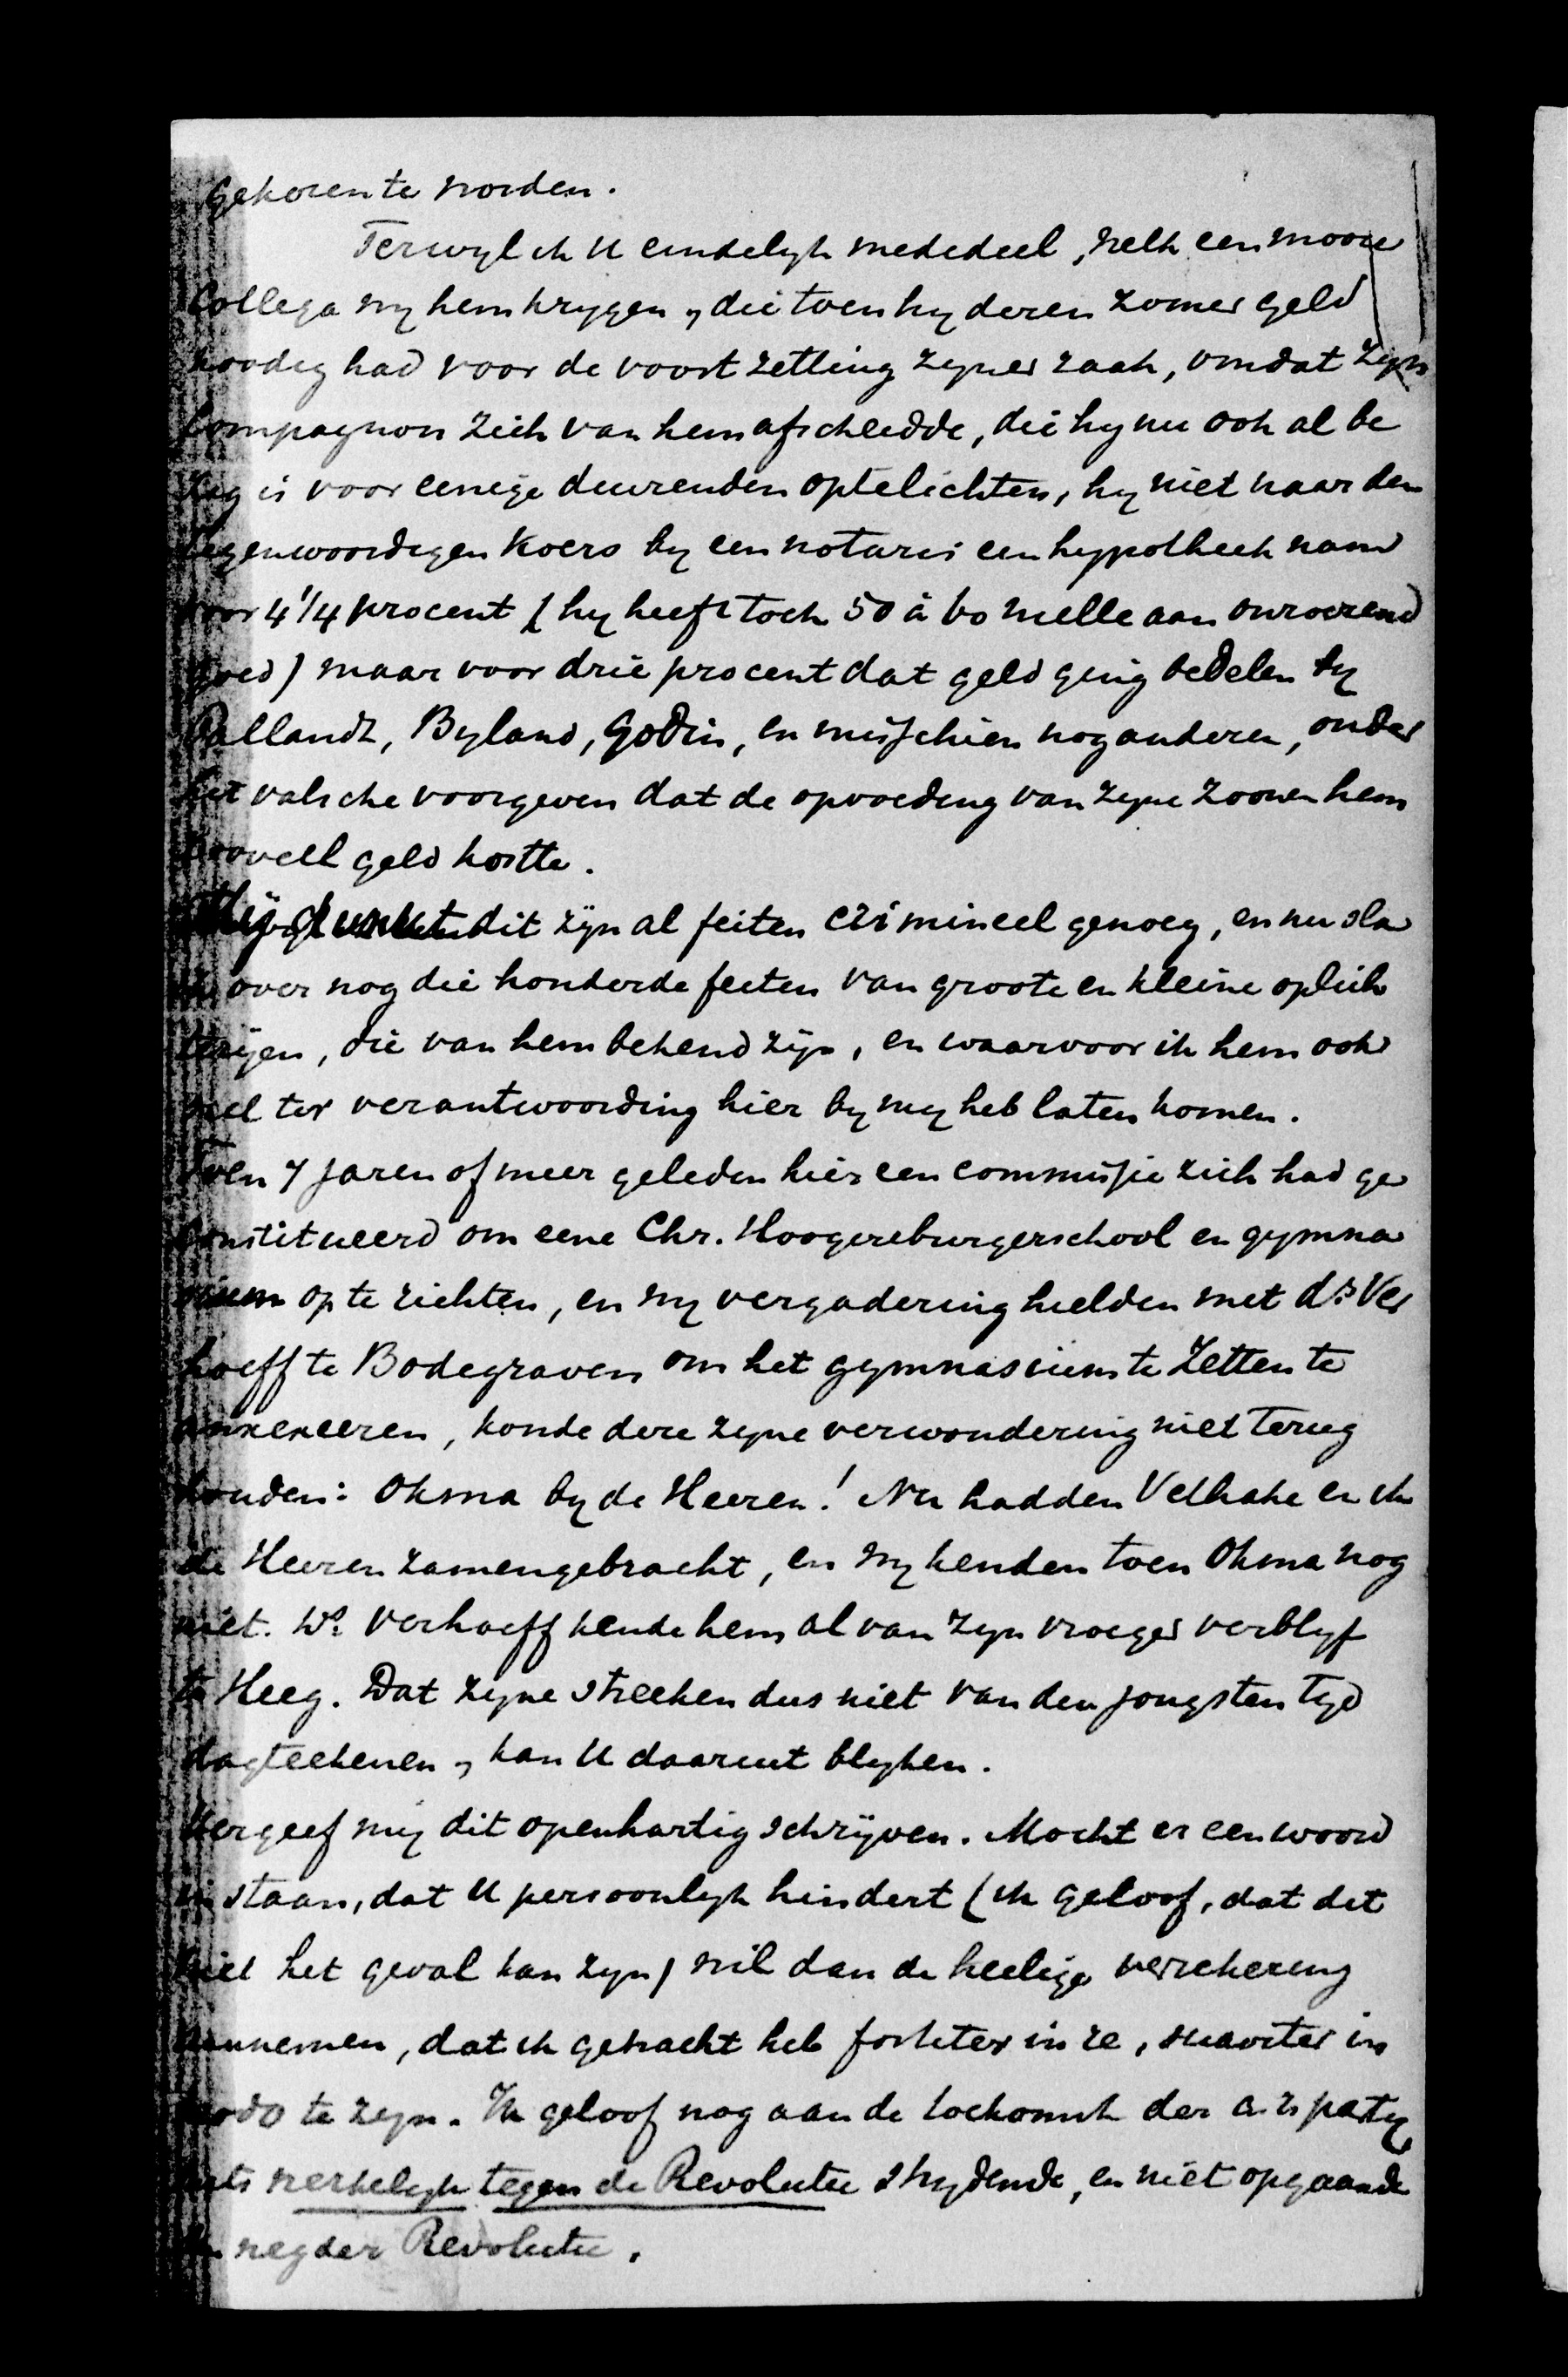 gekozen te worden.
Terwyl ik U eindelyk mededeel, welk een mooie
Collega wy hem krygen, die toen hy dezen zomer geld
noodig had voor de voortzetting zyner zaak, omdat zyn
Compagnon zich van hem afscheidde, die hy nu ook al be
zig is voor eenige duizenden optelichten, hy niet naar den
tegenwoordigen koers by een notaris een hypotheek nam
voor 4 1/4 procent (hy heeft toch 50 à 60 mille aan onroerend
goed) maar voor drie procent dat geld ging bedelen by
Pallandt, Byland, Godin, en misschien nog anderen, onder
het valsche voorgeven dat de opvoeding van zyne zoonen hem
zooveel geld kostte.
dit zijn al feiten crimineel genoeg, en nu sla
ik over nog die honderde feiten van groote en kleine oplich
terijen, die van hem bekend zijn, en waarvoor ik hem ook
wel ter verantwoording hier by my heb laten komen.
Toen 7 jaren of meer geleden hier een commissie zich had ge
constitueerd om eene Chr. Hoogereburgerschool en gymna
sium op te richten, en wy vergadering hielden met ds. Ver
hoeff te Bodegraven om het gymnasium te Zetten te
annexeeren, konde deze zyne verwondering niet terug
houden: Okma by de Heeren! Nu hadden Velhake en ik
de Heeren zamengebracht, en wy kenden toen Okma nog
niet. Ds. Verhoeff kende hem al van zyn vroeger verblyf
te Heeg. Dat zyne streeken dus niet van den jongsten tyd
dagteekenen, kan U daaruit blyken.
Vergeef mij dit openhartig schrijven. Mocht er een woord
in staan, dat U persoonlyk hindert (ik geloof, dat dit
niet het geval kan zyn) wil dan de heilige verzekering
aannemen, dat ik getracht heb fortiter in re, suaviter in
modo te zyn. Ik geloof nog aan de toekomst der a.r. party
mits werkelyk tegen de Revolutie strydende, en niet opgaande
in weg der Revolutie.